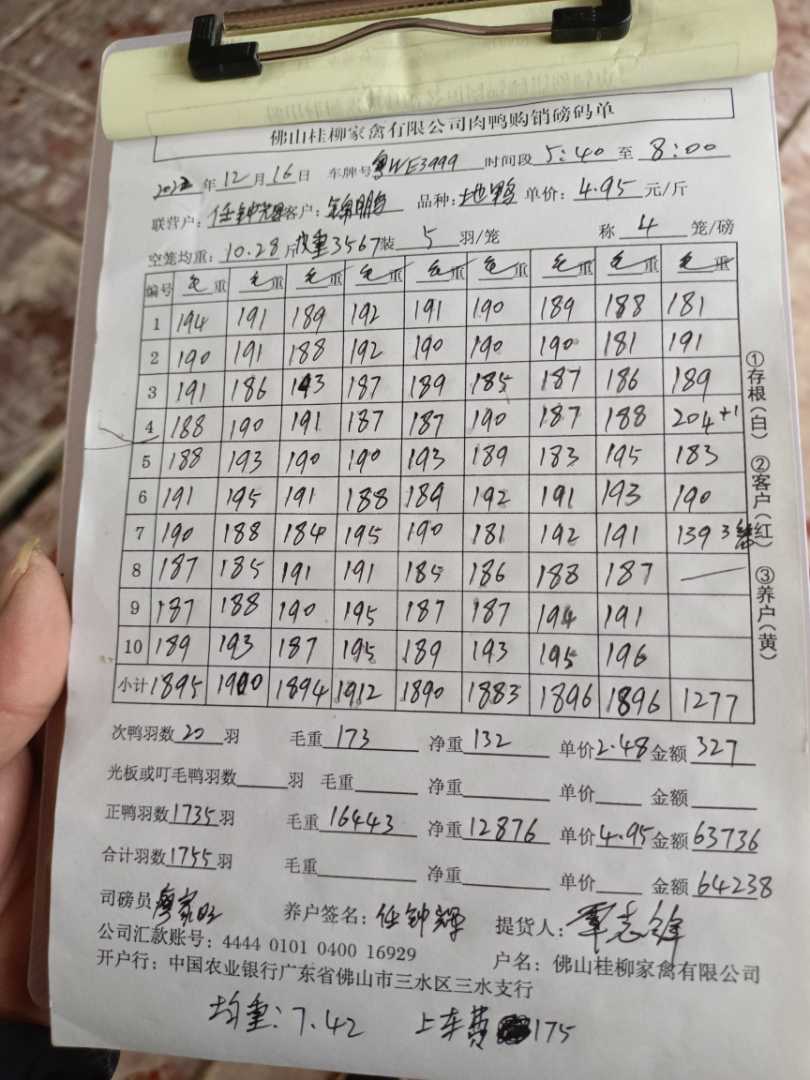 佛山桂柳家禽有限公司肉鸭购销磅码单
2022年12月16日 车牌号粤WE3999 时间段5:40至8:00
联营户:任钟辉 客户:锦鹏 品种:地鸭 单价:4.95元/斤
空笼均重:10.28斤 皮重3567 装5羽/笼 称4笼/磅
编号 毛重 毛重 毛重 毛重 毛重 毛重 毛重 毛重 毛重
1 194 191 189 192 191 190 189 188 181
2 190 191 188 192 190 190 190 181 191
3 191 186 193 187 189 185 187 186 189
4 188 190 191 187 187 190 187 188 204+1
5 188 193 190 190 193 189 183 195 183
6 191 195 191 188 189 192 191 193 190
7 190 188 184 195 190 181 192 191 139 3笼
8 187 185 191 191 185 186 188 187 —
9 187 188 190 195 187 187 194 191
10 189 193 187 195 189 193 195 196
小计 1895 1900 1894 1912 1890 1883 1896 1896 1277
①存根(白) ②客户(红) ③养户(黄)
次鸭羽数20羽 毛重173 净重132 单价2.48 金额327
光板或叮毛鸭羽数 羽 毛重 净重 单价 金额
正鸭羽数1735羽 毛重16443 净重12876 单价4.95 金额63736
合计羽数1755羽 毛重 净重 单价 金额64238
司磅员廖家旺 养户签名:任钟辉 提货人:覃志锋
公司汇款账号:4444 0101 0400 16929 户名:佛山桂柳家禽有限公司
开户行:中国农业银行广东省佛山市三水区三水支行
均重:7.42 上车费175